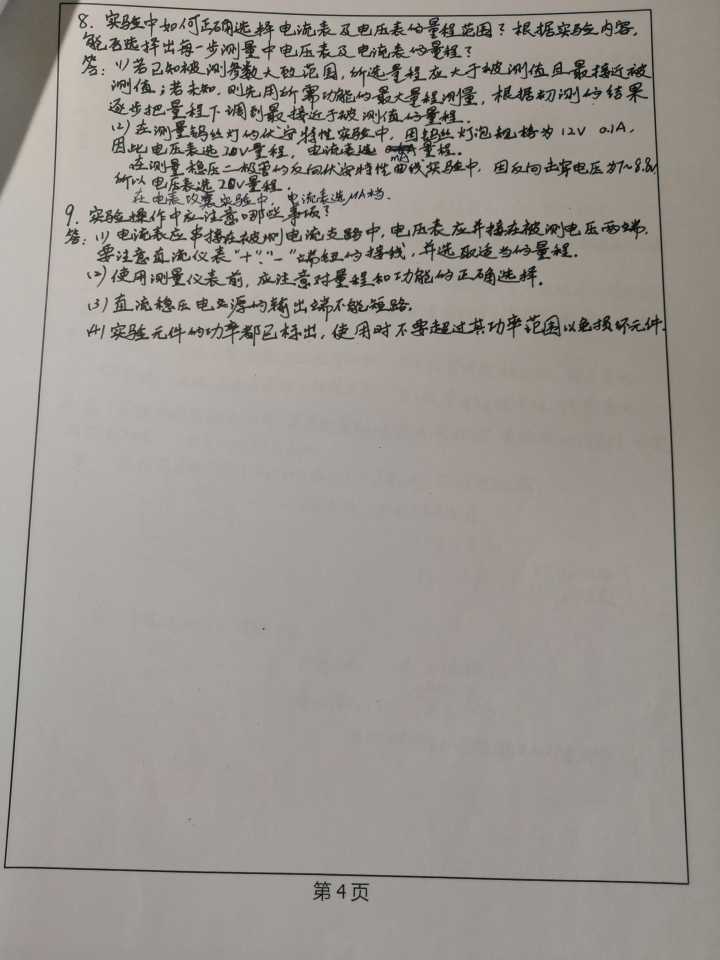 8. 实验中如何正确选择电流表及电压表的量程范围？根据实验内容，
能否选择出每一步测量中电压表及电流表的量程？
答：(1) 若已知被测参数大致范围，所选量程应大于被测值且最接近被
测值；若未知，则先用所需功能的最大量程测量，根据初测的结果
逐步把量程下调到最接近于被测值的量程。
(2) 在测量钨丝灯的伏安特性实验中，因钨丝灯泡规格为12V 0.1A，
因此电压表选20V量程，电流表选 mA 量程.
在测量稳压二极管的反向伏安特性曲线实验中，因反向击穿电压为7~8.8V
所以电压表选20V量程.
在电表改装实验中，电流表选μA档.
9. 实验操作中应注意哪些事项？
答：(1) 电流表应串接在被测电流支路中，电压表应并接在被测电压两端，
要注意直流仪表"+""-"端钮的接线，并选取适当的量程.
(2) 使用测量仪表前，应注意对量程和功能的正确选择.
(3) 直流稳压电源的输出端不能短路.
(4) 实验元件的功率都已标出，使用时不要超过其功率范围以免损坏元件.
第 4 页